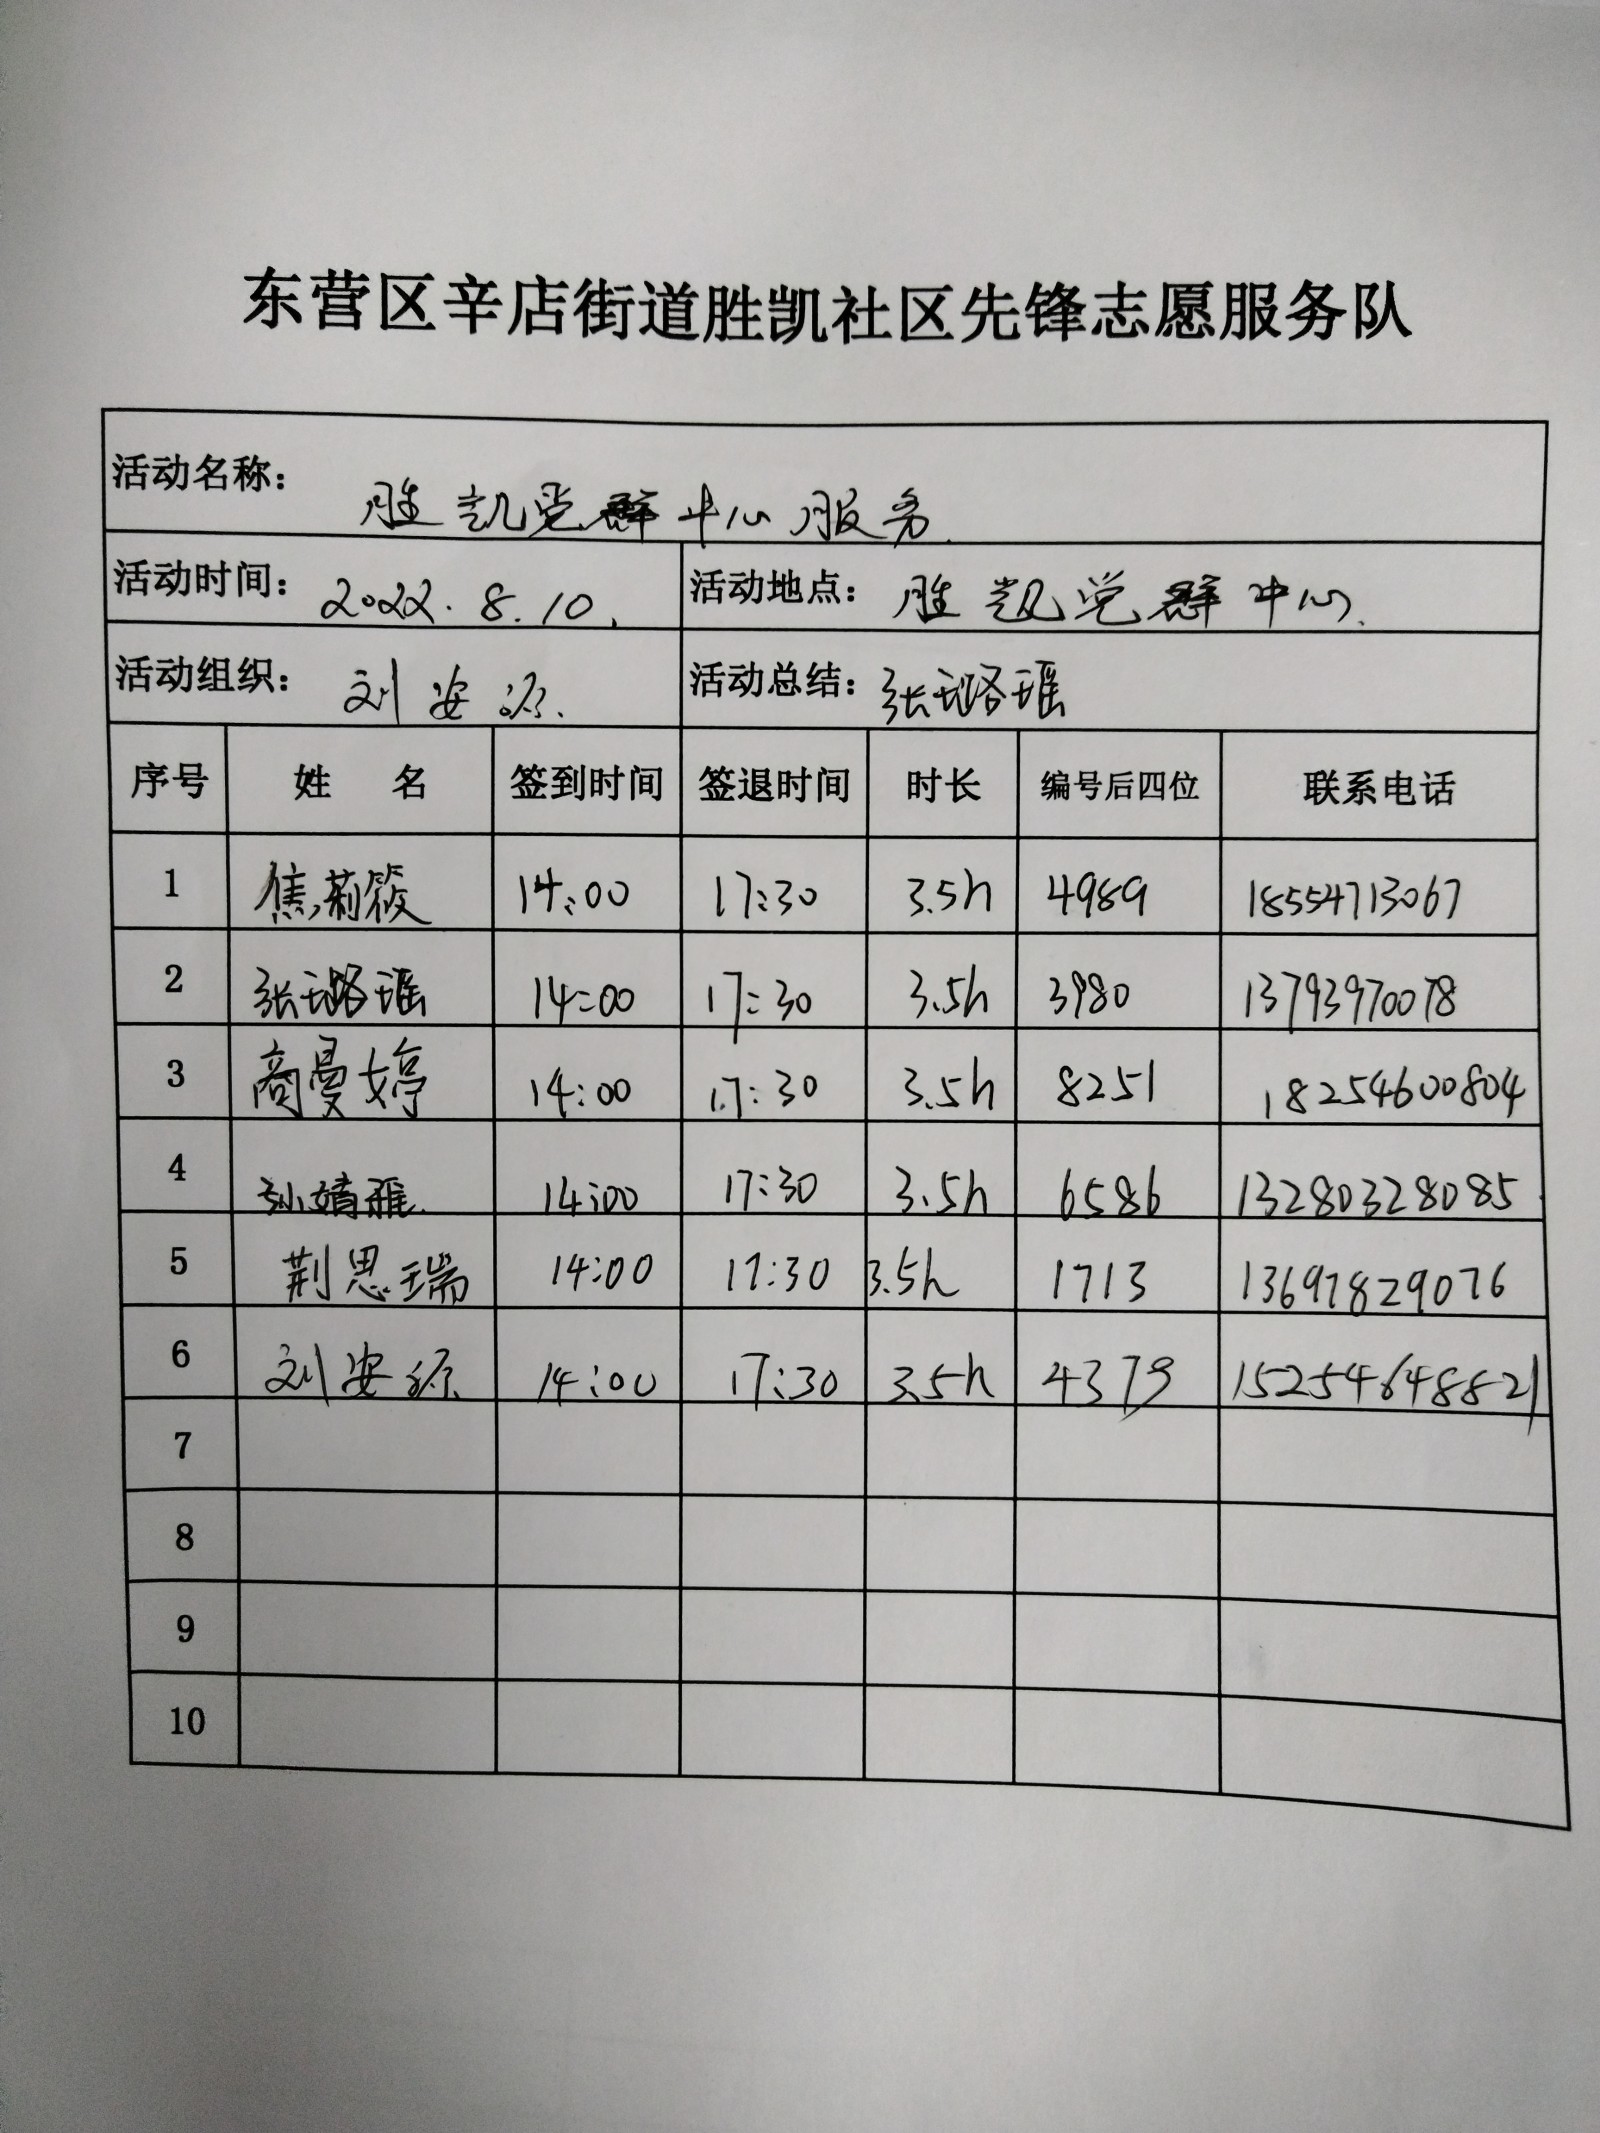 东营区辛店街道胜凯社区先锋志愿服务队
活动名称： 胜凯党群中心服务.
活动时间： 2022.8.10. 活动地点： 胜凯党群中心.
活动组织： 刘安源. 活动总结： 张璐瑶
序号 姓 名 签到时间 签退时间 时长 编号后四位 联系电话
1 焦莉筱 14:00 17:30 3.5h 4989 18554713067
2 张璐瑶 14:00 17:30 3.5h 3980 13793970078
3 商曼婷 14:00 17:30 3.5h 8251 18254600804
4 孙婧雅. 14:00 17:30 3.5h 6586 13280328085.
5 荆思瑞 14:00 17:30 3.5h 1713 13697829076
6 刘安源 14:00 17:30 3.5h 4379 15254648821
7
8
9
10